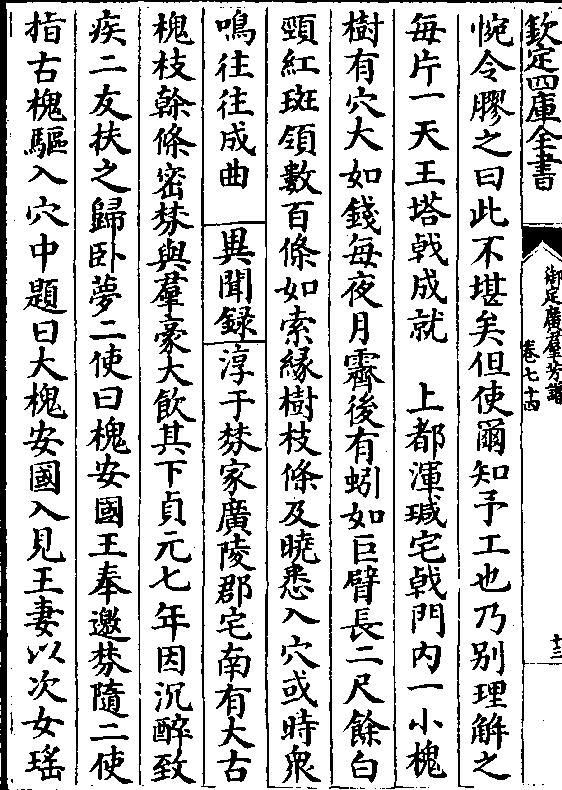 欽定四庫全書
御定廣羣芳譜
卷七十四
十三
惋令膠之曰此不堪矣但使爾知予工也乃别理解之
每片一天王塔戟成就　上都渾瑊宅戟門内一小槐
樹有穴大如錢每夜月霽後有蚓如巨臂長二尺餘白
頸紅斑領數百條如索緣樹枝條及曉悉入穴或時衆
鳴往往成曲　異聞録　淳于棼家廣陵郡宅南有大古
槐枝榦條密棼與羣豪大飲其下貞元七年因沉醉致
疾二友扶之歸卧夢二使曰槐安國王奉邀棼隨二使
指古槐驅入穴中題曰大槐安國入見王妻以次女瑶